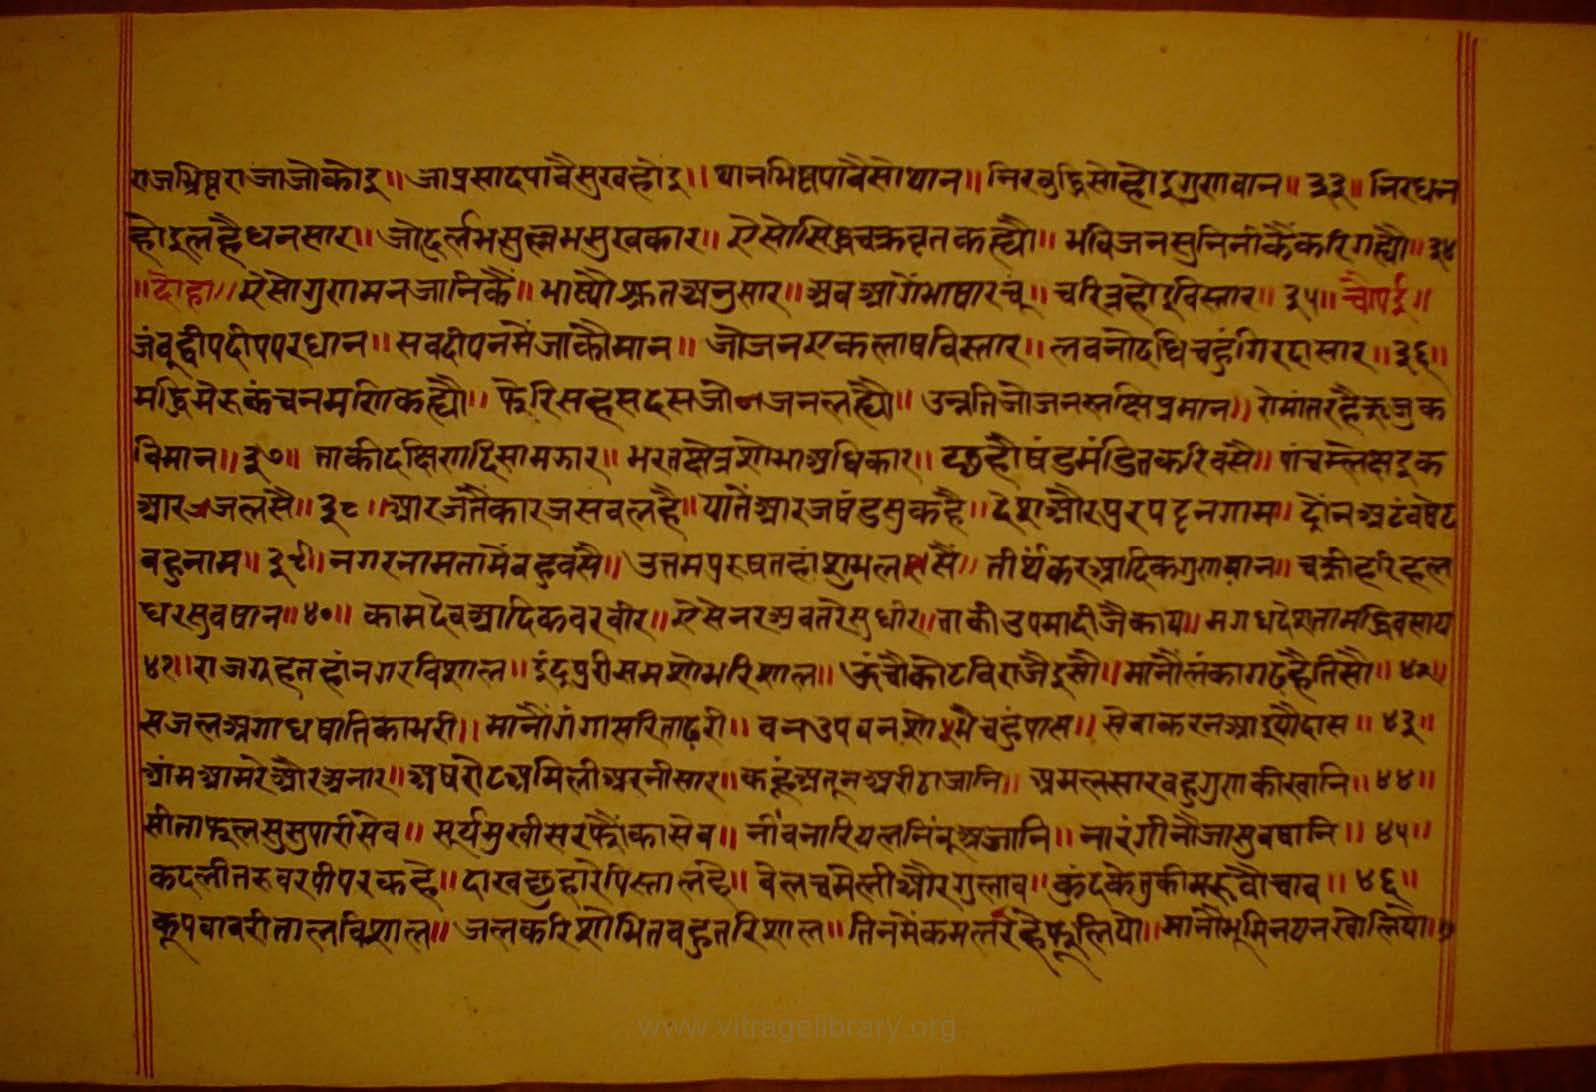 राजभ्रिष्टराजाजोकोइ॥ जाप्रसादपावैसुखहोइ॥ थानभिष्टपावैसोथान॥ निरबुद्धिसोहोइगुणवान॥३३॥ निरधन
होइलहैधनसार॥ जोदुर्लभसुल्लभसुखकार॥ ऐसोसिद्धचक्रवृतकह्यौ॥ भविजनसुनिनीकैंकरिगह्यौ॥३४
॥दोहा॥ऐसोगुणमनजानिकैं॥ भाष्यौश्रुतअनुसार॥ अबआगेंभाषारचूं॥ चरित्रहोइविस्तार॥३५॥ चौपई॥
जंबूद्वीपदीपपरधान॥ सबदीपनमेंजाकौमान॥ जोजनएकलाषविस्तार॥ लवनोदधिचहुंगिरदासार॥३६॥
मद्धिमेरूकंचनमणिकह्यौ॥ फेरिसहसदसजोजनलह्यौ॥ उन्नतिजोजनलक्षिप्रमान॥ रोमांतरहैरूजुक
विमान॥३७॥ ताकीदक्षिणदिसामझार॥ भरतक्षेत्रशोभाअधिकार॥ छहौंषंडमंडितकरिवसै॥ पांचमलेक्षइक
आरजजलसै॥३८॥आरजतैंकारजसबलहै॥ यातेंआरजषंडसुकहै॥ देशऔरपुरपट्टनगाम॥ द्रौंनअटंबषेट
बहुनाम॥३९॥नगरनामतामेंबहुवसै॥ उत्तमपुरुषतहांशुभलसैं॥ तीर्थंकरआदिकगुणषान॥ चक्रीहरिहल
धरसुबषान॥४०॥ कामदेवआदिकवरवीर॥ ऐसेनरअवतरेसुधीर॥ताकीउपमादीजैकाय॥ मगधदेशतामद्धिवसाय
४१॥राजगृहतहांनगरविशाल॥ इंद्रपुरीसमशोभरिशाल॥ ऊंचौकोटविराजैइसौ॥ मानौंलंकागढहैतिसौ॥४२॥
सजलअगाधषातिकाभरी॥ मानौंगंगासरिताढरी॥ वनउपवनशोभैचहुंपास॥ सेवाकरनआइयौदास॥४३॥
आंमआमरेऔरअनार॥अषरोटअमिलीअरनीसार॥ कहूंअतूनअरीठाजानि॥ अमलसारबहुगुणकीखानि॥४४॥
सीताफूलसुसुपारीसेव॥ सूर्यमुखीसरंफौंकासेव॥ नींवनारियलनिंबूअजानि॥ नारंगीनौजासुबषानि॥४५॥
कदलीतरूवरपीपरकहै॥ दाखछुहारेपिस्तालहै॥ वेलचमेलीऔरगुलाब॥ कुंदकेतुकीमरूवौचाव॥४६॥
कूपवावरीतालविशाल॥ जलकरिशोभितबहुतरिशाल॥ तिनमेंकमलरहेफूलियो॥ मानौंभूमिनयनखोलियो॥४७
www.vitragelibrary.org